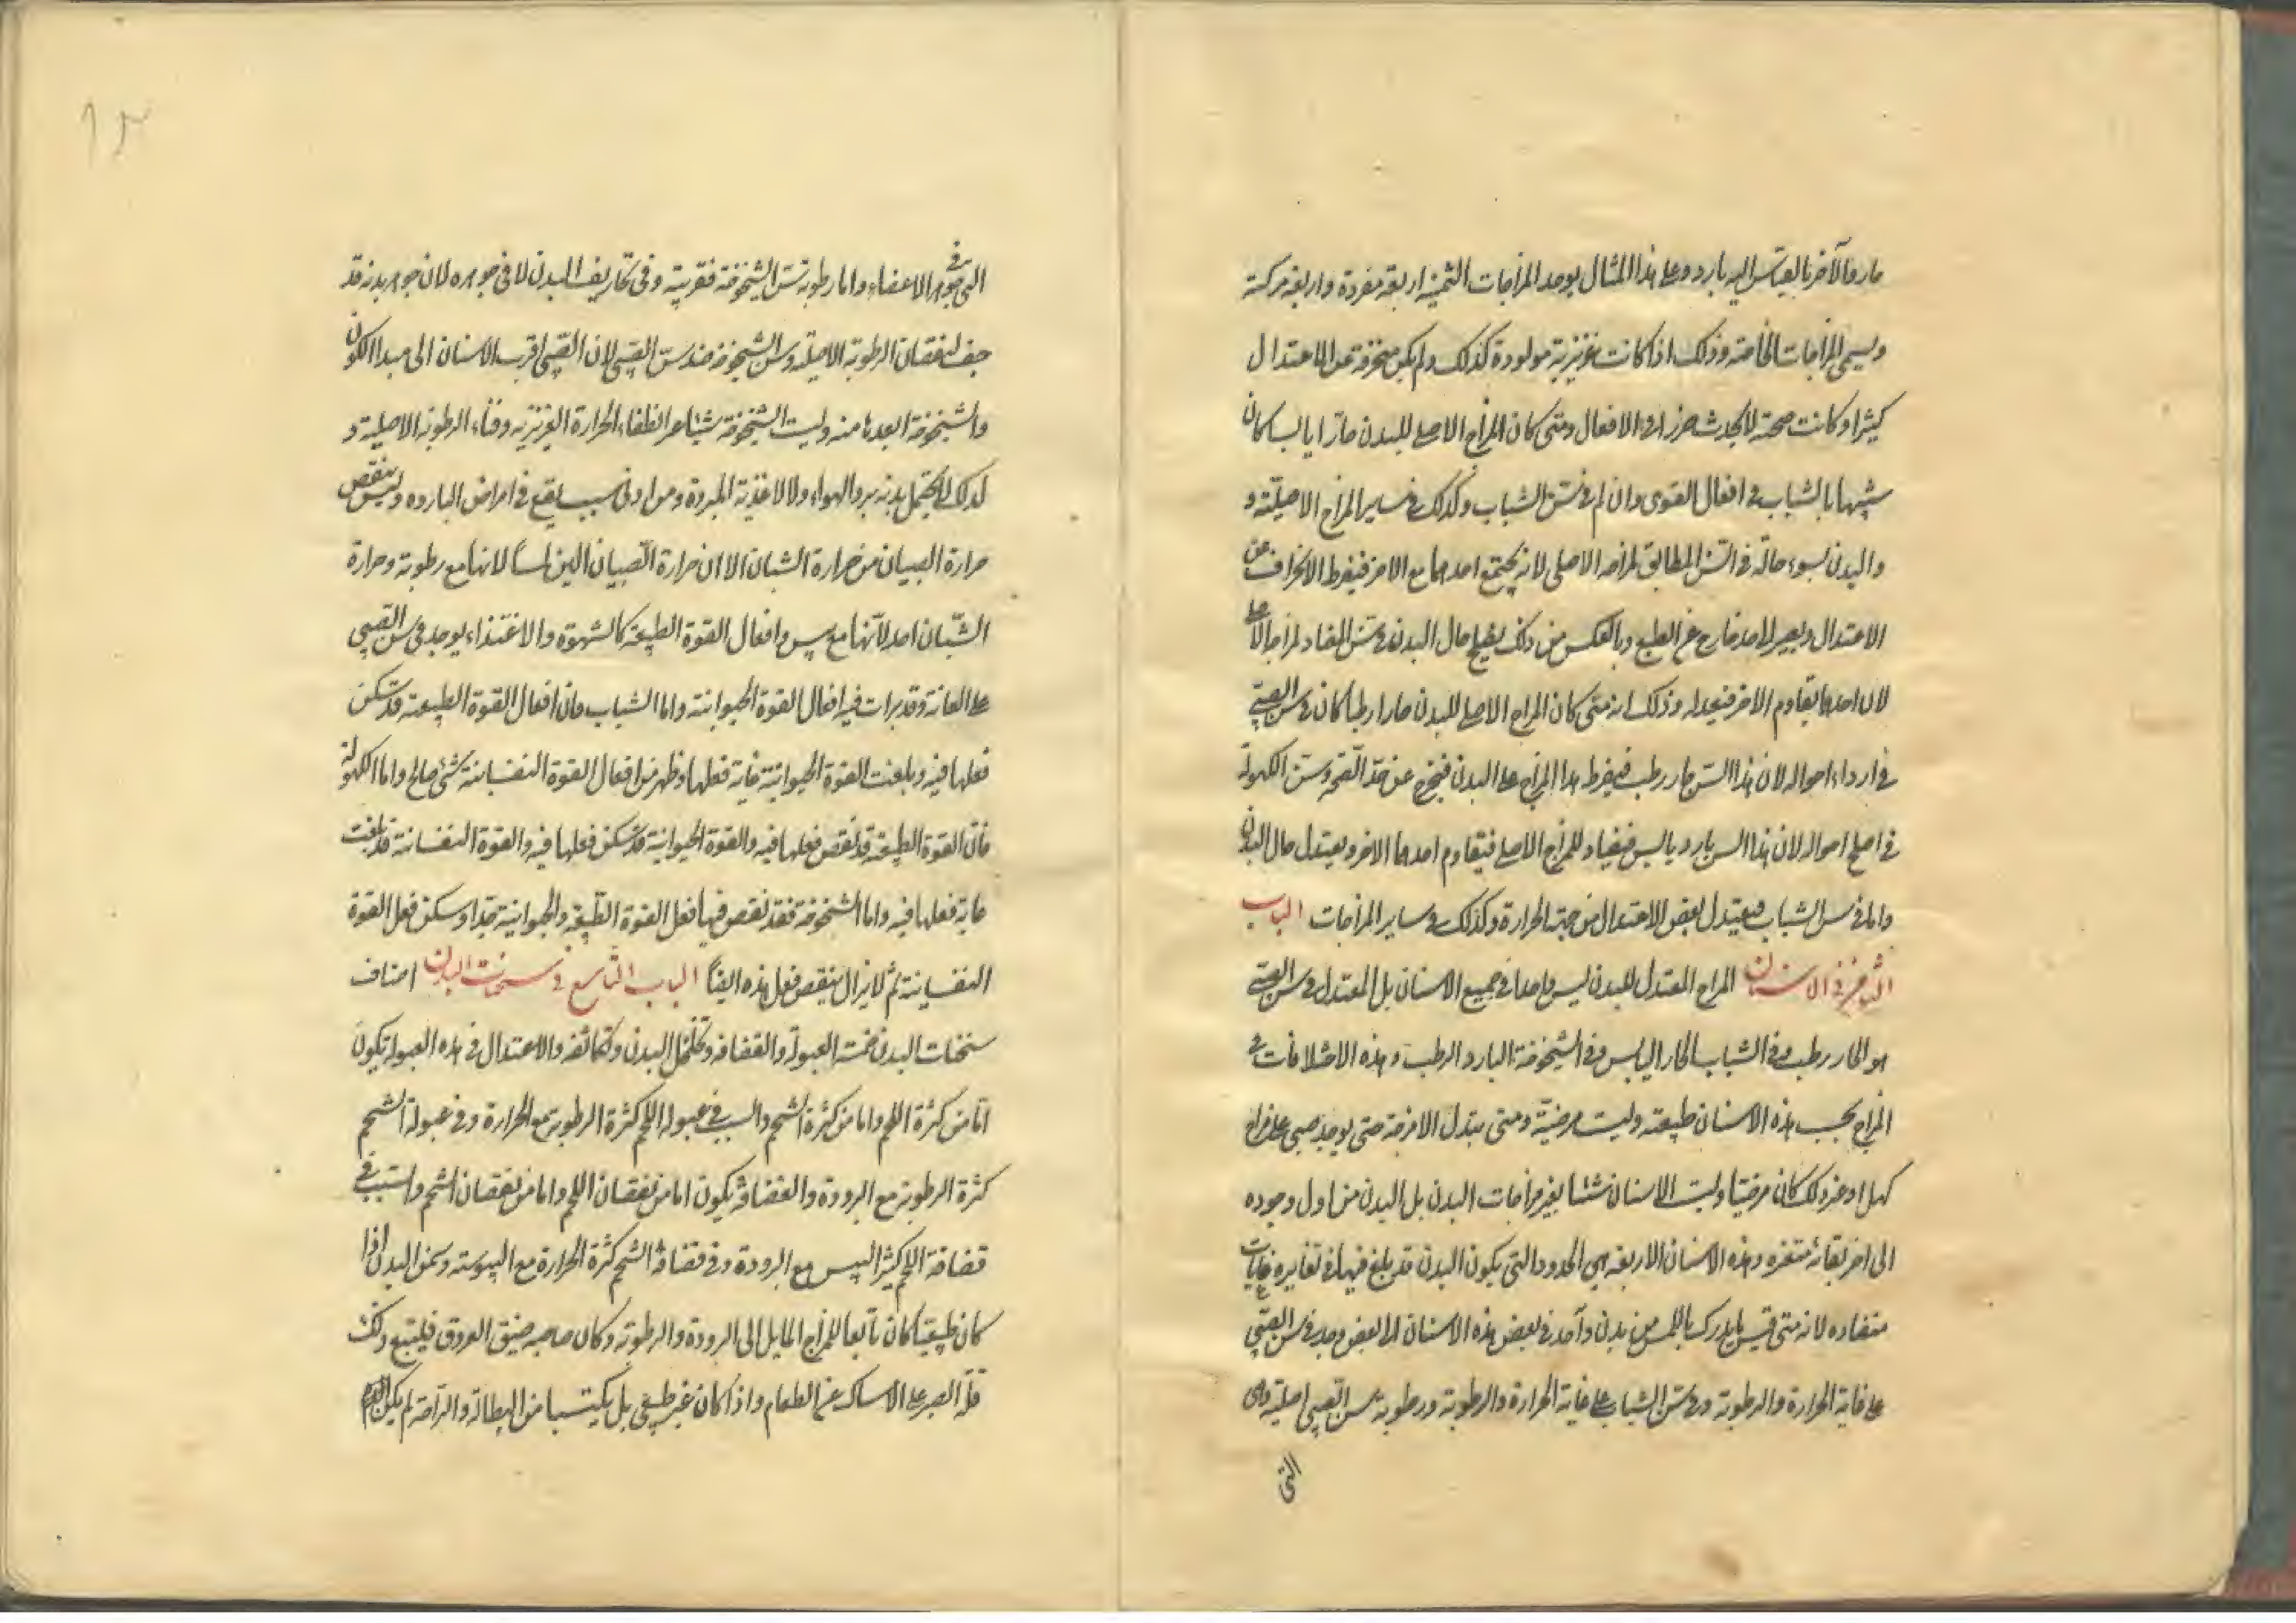 حار والآخر بالقياس اليه بارد وعلى هذا المثال يوجد المزاجات الثمنية اربعة مفردة واربعة مركبة
ويسمى المزاجات الخاصة وذلك اذا كانت غريزية مولودة كذلك ولم يكن منحرفة عن الاعتدال
كثيرا وكانت صحية لا يحدث ضررا في الافعال ومتى كان المزاج الاصلي للبدن حارا يابسا كان
شبيها بالشباب في افعال القوى وان لم في سن الشباب وكذلك في ساير المزاج الاصلية و
والبدن يسوء حاله في السن المطابق لمزاجه الاصلي لانه يجتمع احدهما مع الاخر فيفرط الانحراف عن
الاعتدال ويصير لاحد خارج عن الطبع وبالعكس من ذلك يصلح حال البدن في سن المضاد لمزاجه الاصلي
لان احدهما يقاوم الاخر فيعدله وذلك انه متى كان المزاج الاصلي للبدن حارا رطبا كان في سن الصبي
في ارداء احواله لان هذا السن حار رطب فيفرط هذا المزاج على البدن فيخرج عن حد الصحة وسن الكهولة
في اصلح احواله لان هذا السن بارد يابس فيضاد للمزاج الاصلي فيقاوم احدهما الاخر ويعتدل حال البدن
واما في سن الشباب فيعتدل بعض الاعتدال من جهة الحرارة وكذلك في ساير المزاجات الباب
الثامن في الاسنان المزاج المعتدل للبدن ليس واحدا في جميع الاسنان بل المعتدل في سن الصبي
هو الحار رطب وفي الشباب الحار اليابس وفي الشيخوخة البارد الرطب وهذه الاختلافات في
المزاج بحسب هذه الاسنان طبيعية وليست مرضية ومتى تبدل الامزجة حتى يوجد صبي على مزاج
كهل او غير ذلك كان مرضيا وليست الاسنان شيئا يغير مزاجات البدن بل البدن من اول وجوده
الى اخر بقائه متغيره وهذه الاسنان الاربعة هي الحدود التي يكون البدن قد بلغ فيها في تغايره غايات
متضاده لانه متى قيس ما يدرك باللمس من بدن واحد في بعض هذه الاسنان الى بعض وجد في سن الصبي
على غاية الحرارة والرطوبة وفي سن الشباب على غاية الحرارة والرطوبة ورطوبة سن الصبي اصلية وهي
التي
التي في جوهر الاعضاء واما رطوبة سن الشيخوخة فغريبة وفي تجاويف البدن لا في جوهره لان جوهر بدنه قد
جف لنقصان الرطوبة الاصلية وسن الشيخوخة ضد سن الصبي لان الصبي اقرب الاسنان الى مبدا الكون
والشيخوخة ابعدها منه وليست الشيخوخة شيئا غير انطفاء الحرارة الغريزية وفناء الرطوبة الاصلية و
لذلك لا يحتمل بدنه برد الهواء ولا الاغذية المبردة ومن ادنى سبب يقع في امراض البارده وليس ينقص
حرارة الصبيان من حرارة الشبان الا ان حرارة الصبيان الين لمسا لانها مع رطوبة وحرارة
الشبان احد لانها مع يبس وافعال القوة الطبيعية كالشهوة والاغتذاء يوجد في سن الصبي
على الغاية وقد برات فيه افعال القوة الحيوانية واما الشباب فان افعال القوة الطبيعية قد سكن
فعلها فيه وبلغت القوة الحيوانية غاية فعلها وظهر من افعال القوة النفسانية شيء صالح واما الكهولة
فان القوة الطبيعية قد نقص فعلها فيه والقوة الحيوانية قد سكن فعلها فيه والقوة النفسانية قد بلغت
غاية فعلها فيه واما الشيخوخة فقد نقص فيها فعل القوة الطبيعية والحيوانية جدا وسكن فعل القوة
النفسانية ثم لا يزال ينقص فعل هذه ايضا الباب التاسع في سحنات البدن اصناف
سحنات البدن خمسة العبولة والقضافه وتخلخل البدن وتكاثفه والاعتدال في هذه العبولة يكون
اما من كثرة اللحم واما من كثرة الشحم والسبب في عبولة اللحم كثرة الرطوبة مع الحرارة وفي عبولة الشحم
كثرة الرطوبة مع البرودة والقضافة يكون اما من نقصان اللحم واما من نقصان الشحم والسبب في
قضافة اللحم كثير اليبس مع البرودة وفي قضافة الشحم كثرة الحرارة مع اليبوسة وسمن البدن اذا
كان طبيعيا كان تابعا للمزاج المايل الى البرودة والرطوبة وكان صاحبه ضيق العروق فيتبع ذلك
قلة الصبر على الامساك عن الطعام واذا كان غير طبيعي بل يكتسبا من البطالة والراحة لم يكن الدم